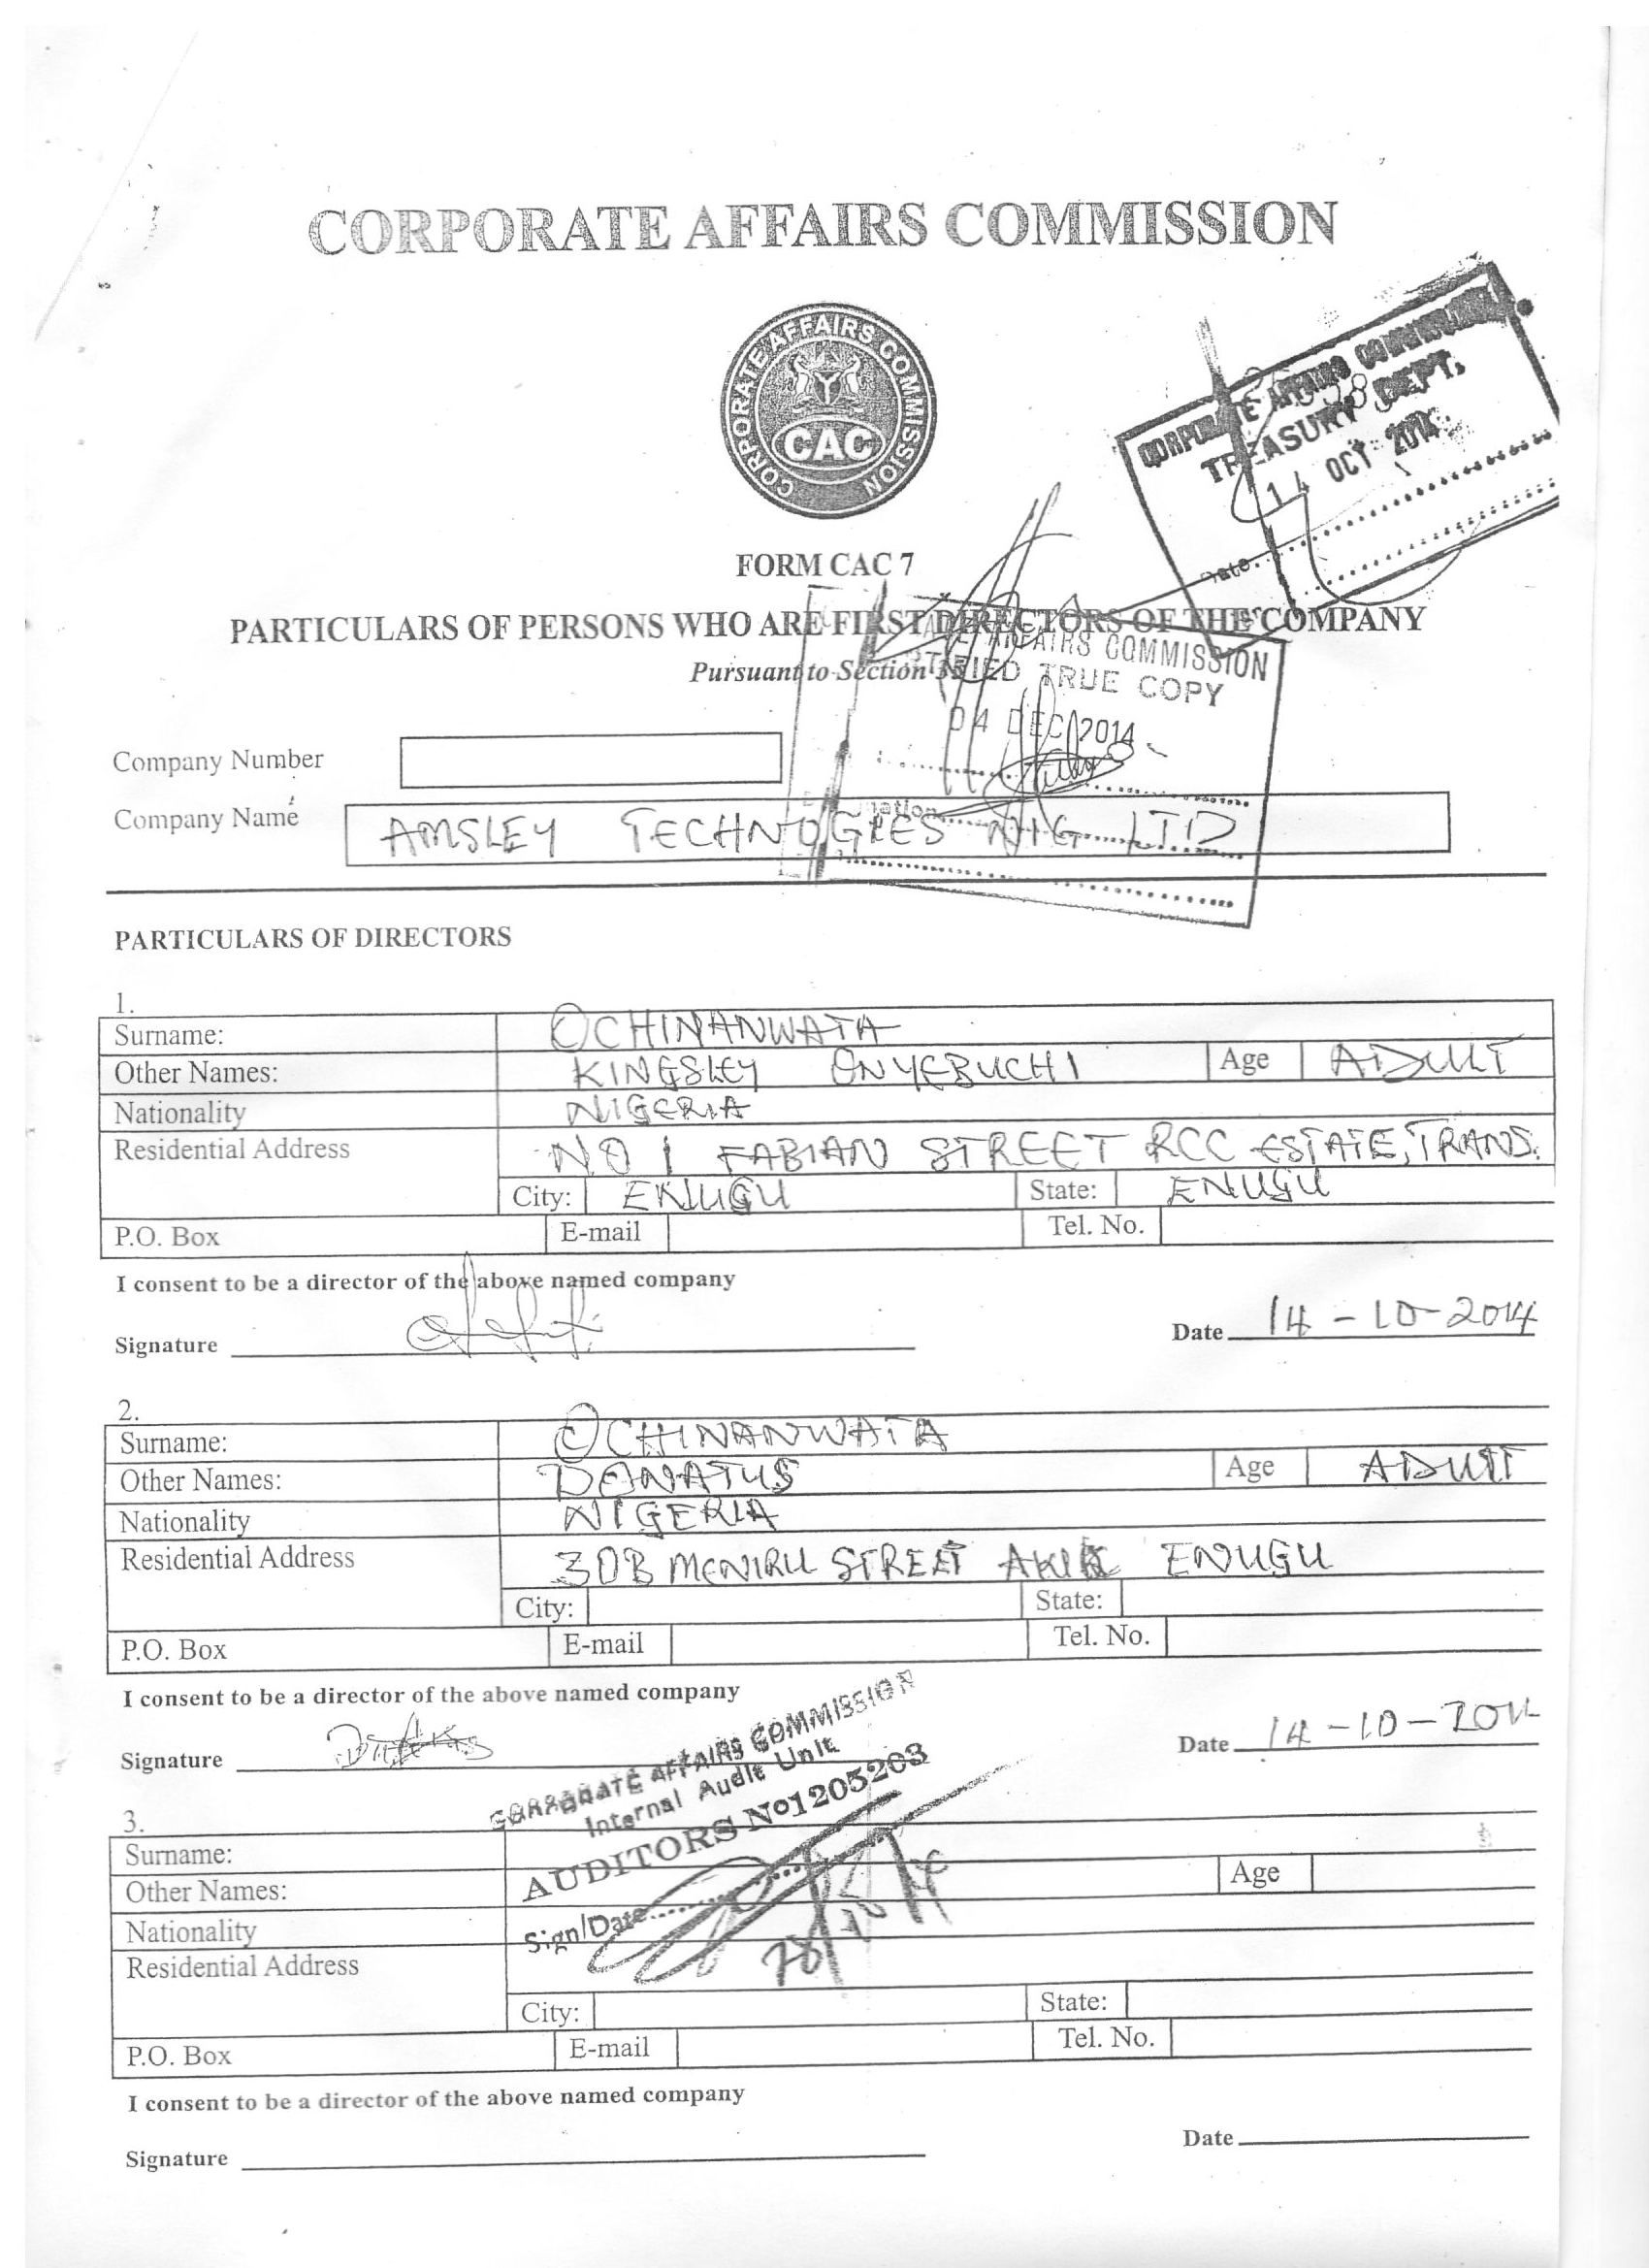 CORPORATE AFFAIRS COMMISSION
CORPORATE AFFAIRS COMMISSION
CAC
CORPORATE AFFAIRS COMMISSION
TREASURY DEPT.
14 OCT 2014
Date
FORM CAC 7
PARTICULARS OF PERSONS WHO ARE FIRST DIRECTORS OF THE COMPANY
Pursuant to Section 35
AFFAIRS COMMISSION
TRUE COPY
04 DEC 2014
Company Number
Company Name AMSLEY TECHNOGIES NIG LTD
PARTICULARS OF DIRECTORS
1.
Surname: OCHINANWATA
Other Names: KINGSLEY ONYEBUCHI Age ADULT
Nationality NIGERIA
Residential Address NO 1 FABIAN STREET RCC ESTATE, TRANS.
City: ENUGU State: ENUGU
P.O. Box E-mail Tel. No.
I consent to be a director of the above named company
Signature Date 14-10-2014
2.
Surname: OCHINANWATA
Other Names: DONATUS Age ADULT
Nationality NIGERIA
Residential Address 30B STREET ENUGU
City: State:
P.O. Box E-mail Tel. No.
I consent to be a director of the above named company
Signature Date 14-10-2014
CORPORATE AFFAIRS COMMISSION
Internal Audit Unit
AUDITORS No1205203
Sign/Date
3.
Surname:
Other Names: Age
Nationality
Residential Address
City: State:
P.O. Box E-mail Tel. No.
I consent to be a director of the above named company
Signature Date